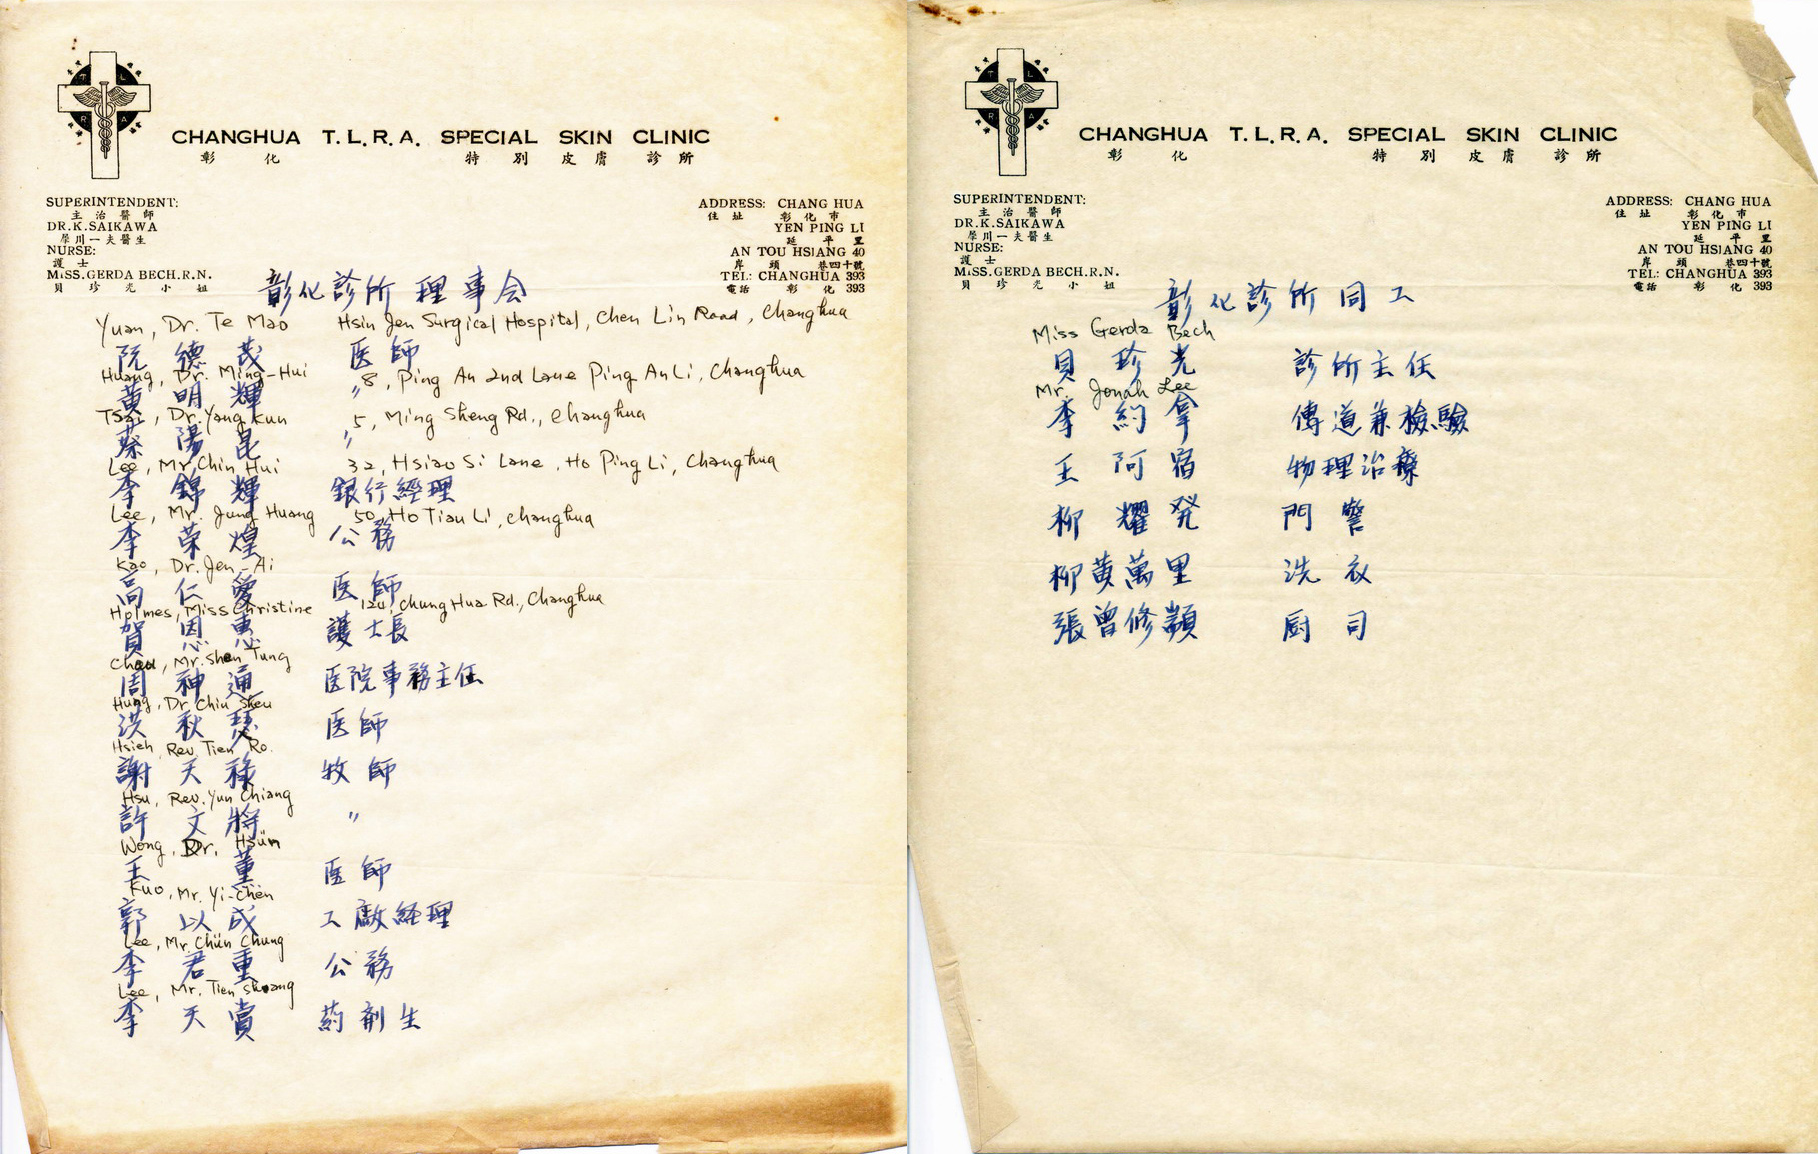 CHANGHUA T.L.R.A. SPECIAL SKIN CLINIC
彰化 特別皮膚診所
SUPERINTENDENT:
主治醫師
DR.K.SAIKAWA
犀川一夫醫生
NURSE:
護士
MISS.GERDA BECH.R.N.
貝珍光小姐
ADDRESS: CHANG HUA
住址 彰化市
YEN PING LI
延平里
AN TOU HSIANG 40
岸頭巷四十號
TEL: CHANGHUA 393
電話 彰化 393
彰化診所理事会
Yuan, Dr. Te Mao Hsin Jen Surgical Hospital, Chen Lin Road, Changhua
阮德茂 医師
Huang, Dr. Ming-Hui 8, Ping An 2nd Lane Ping An Li, Changhua
黃明輝 〃
Tsai, Dr. Yang Kun 5, Ming Sheng Rd., Changhua
蔡陽昆 〃
Lee, Mr. Chin Hui 32, Hsiao Si Lane, Ho Ping Li, Changhua
李錦輝 銀行經理
Lee, Mr. Jung Huang 50, Ho Tian Li, Changhua
李荣煌 公務
Kao, Dr. Jen-Ai
高仁愛 医師
Holmes, Miss Christine Chung Hua Rd., Changhua
賀恩惠 護士長
Chou, Mr. Shen Tung
周神通 医院事務主任
Hung, Dr Chiu Sheu
洪秋瑟 医師
Hsieh, Rev. Tien Ro.
謝天祿 牧師
Hsu, Rev. Yun Chiang
許文將 〃
Wong, Dr. Hsün
王薰 医師
Kuo, Mr. Yi-Chen
郭以成 工廠経理
Lee, Mr. Chün Chung
李君重 公務
Lee, Mr. Tien Shang
李天賞 葯剤生
CHANGHUA T.L.R.A. SPECIAL SKIN CLINIC
彰化 特別皮膚診所
SUPERINTENDENT:
主治醫師
DR.K.SAIKAWA
犀川一夫醫生
NURSE:
護士
MISS.GERDA BECH.R.N.
貝珍光小姐
ADDRESS: CHANG HUA
住址 彰化市
YEN PING LI
延平里
AN TOU HSIANG 40
岸頭巷四十號
TEL: CHANGHUA 393
電話 彰化 393
彰化診所同工
Miss Gerda Bech
貝珍光 診所主任
Mr. Jonah Lee
李約拿 傳道兼檢驗
王阿宿 物理治療
柳耀発 門警
柳黄萬里 洗衣
張曾修 厨司